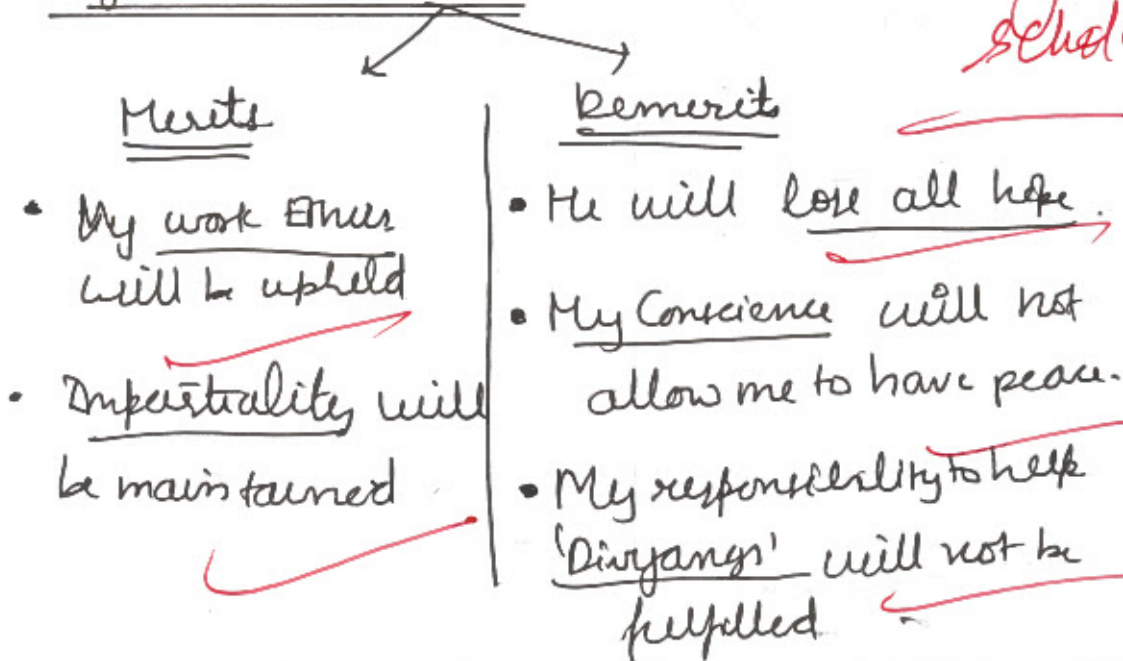 Merits
• My work Ethics
will be upheld
• Impartiality will
be maintained
Demerits
• He will lose all hope.
• My Conscience will not
allow me to have peace.
• My responsibility to help
'Divyangs' will not be
fulfilled.